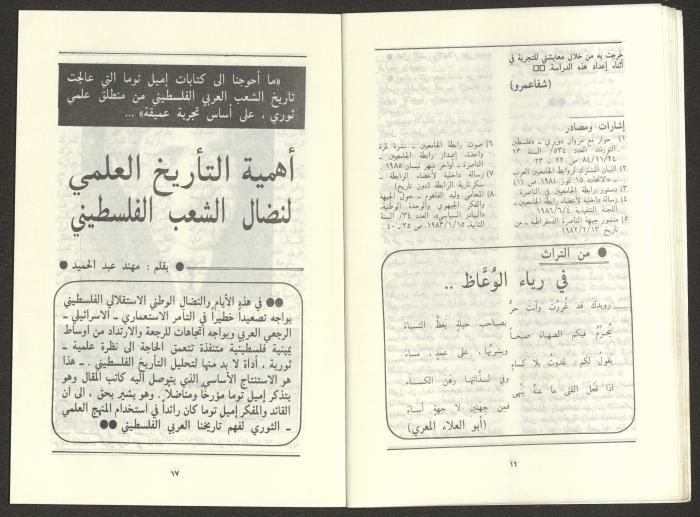 خرجت به من خلال معايشتي للتجربة في
أثناء إعداد هذه الدراسة.
(شفاعمرو)
إشارات ومصادر
١) حوار مع مروان دويري ـ «فلسطين
الثورة» العدد ٥٣٤/ السنة ١٣
٨٤/١١/٢٤ ص ٢٢ ـ ٢٣.
٢) البيان المشترك لرابطة الجامعيين العرب
ـ «الاتحاد» ١٥ تموز ١٩٨٤ ص (١)
٣) دستور رابطة الجامعيين في الناصرة.
٤) رسالة داخلية لأعضاء رابطة الجامعيين ـ
اللجنة التنفيذية ١٩٨٦/٦/٤
٥) منشور جبهة الناصرة الديمقراطية ـ من
تاريخ ١٩٨٢/٢/١٣
٦) صوت رابطة الجامعيين ـ نشرة لمرة
واحدة، إصدار رابطة الجامعيين ـ
الناصرة ـ أواخر شهر نيسان ١٩٨٥.
٧) رسالة داخلية لأعضاء الرابطة ـ
سكرتارية الرابطة (دون تاريخ)
٨) المحامي وليد الفاهوم ـ حول الجبهة
والفكر الجبهوي والوحدة الوطنية.
«البيادر السياسي»، العدد ٣٤/ السنة
الثانية، ١٩٨٣/١/١٥، ص ٣٥ ـ ٤٠.
● من التراث
في رياء الوُعَّاظ ..
رويدك قد غُررتَ وأنت حرٌّ
بصاحب حيلةٍ يعظُ النساء
يُحرّمُ فيكم الصهباء صبحاً
ويشربُها، على عمدٍ، مساء
يقولُ لكم، غدوتُ بلا كساءٍ
وفي لذّاتها رهن الكساء
اذا فعل الفتى ما عنهُ يَنْهى
فمن جهتينِ لا جهةٍ أساء
(أبو العلاء المعري)
١٦
«ما أحوجنا الى كتابات إميل توما التي عالجت
تاريخ الشعب العربي الفلسطيني من منطلق علمي
ثوري ، على أساس تجربة عميقة» ...
أهمية التأريخ العلمي
لنضال الشعب الفلسطيني
● بقلم : مهند عبد الحميد ●
●● في هذه الأيام والنضال الوطني الاستقلالي الفلسطيني
يواجه تصعيداً خطيراً في التآمر الاستعماري ـ الاسرائيلي ـ
الرجعي العربي ويواجه اتجاهات للرجعة والارتداد من أوساط
يمينية فلسطينية متنفذة تتعمق الحاجة الى نظرة علمية ـ
ثورية ، أداة لا بد منها لتحليل التأريخ الفلسطيني .ـ هذا
هو الاستنتاج الأساسي الذي يتوصل اليه كاتب المقال وهو
يتذكر إميل توما مؤرخاً ومناضلاً. وهو يشير بحق ، الى أن
القائد والمفكر إميل توما كان رائداً في استخدام المنهج العلمي
ـ الثوري لفهم تاريخنا العربي الفلسطيني ●●
١٧